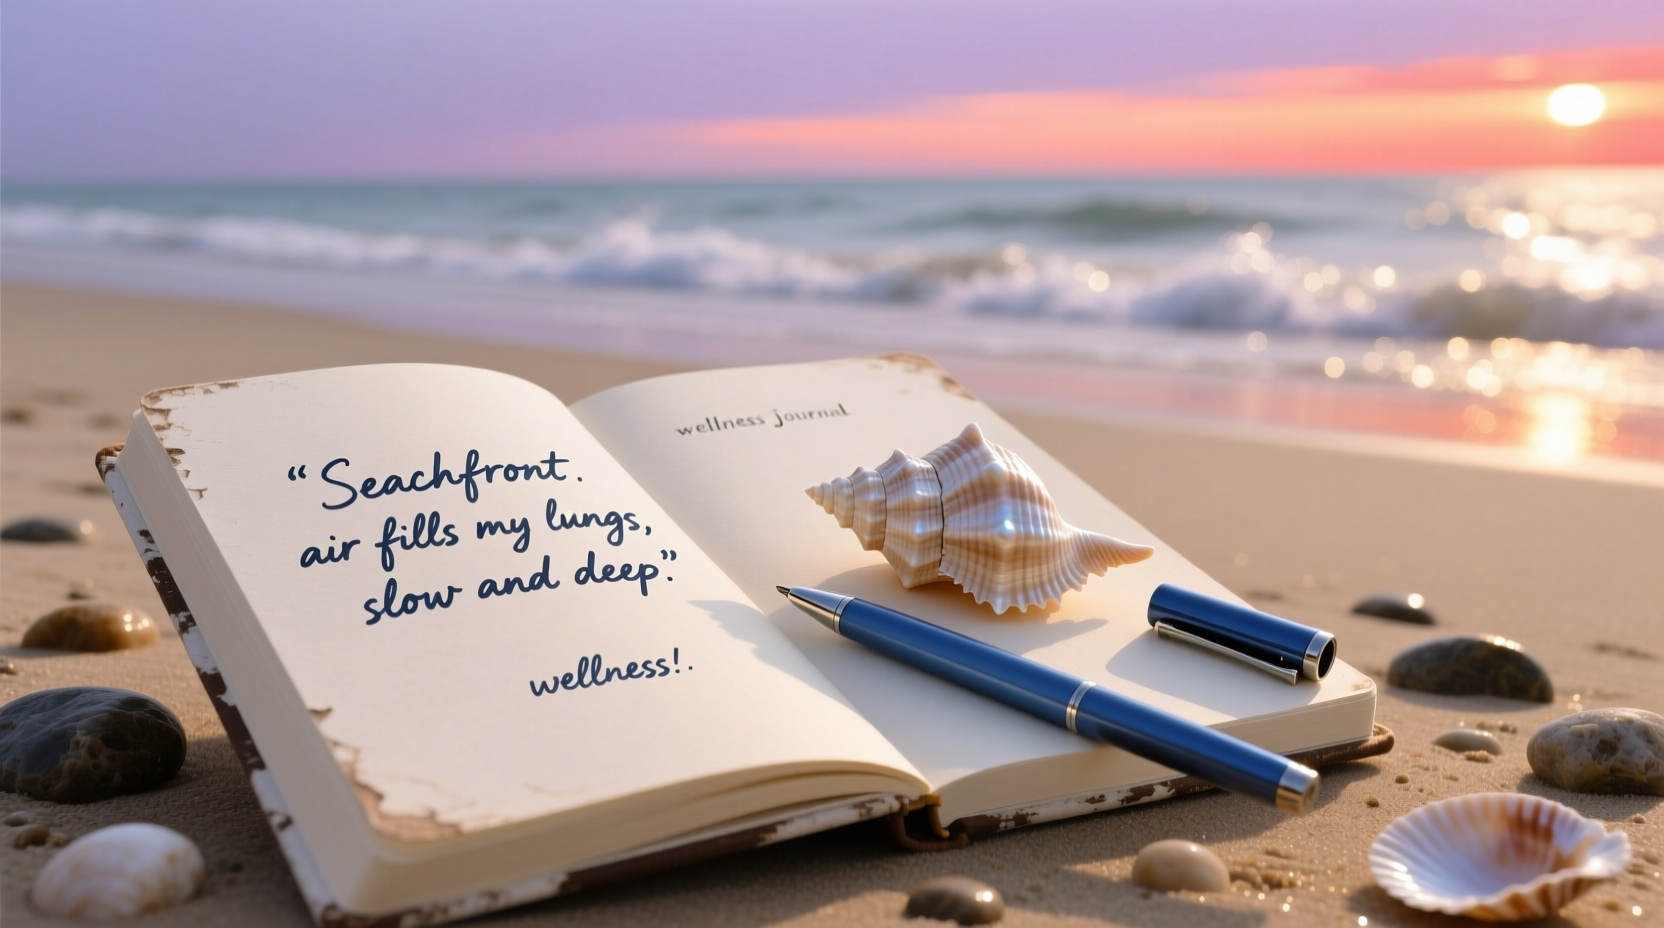 “Seachfront.
air fills my lungs,
slow and deep.”
wellness!.
wellness journal